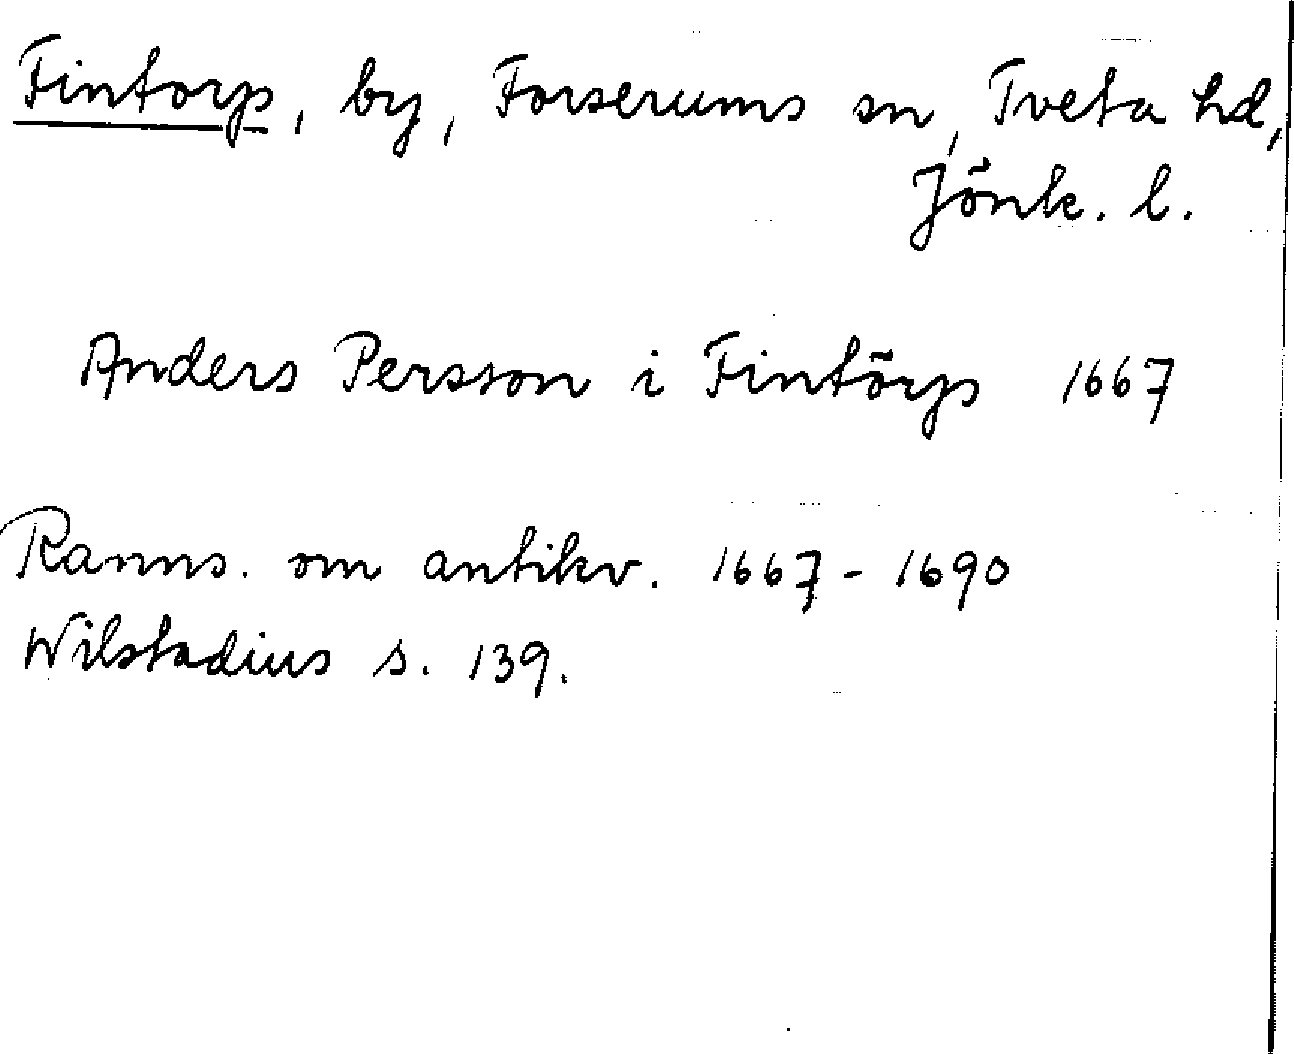 Fintorp, by, Forserums sn, Tveta hd,
Jönk. l.
Anders Persson i Fintörp 1667
Ranns. om antikv. 1667-1690
Wilstadius s. 139.